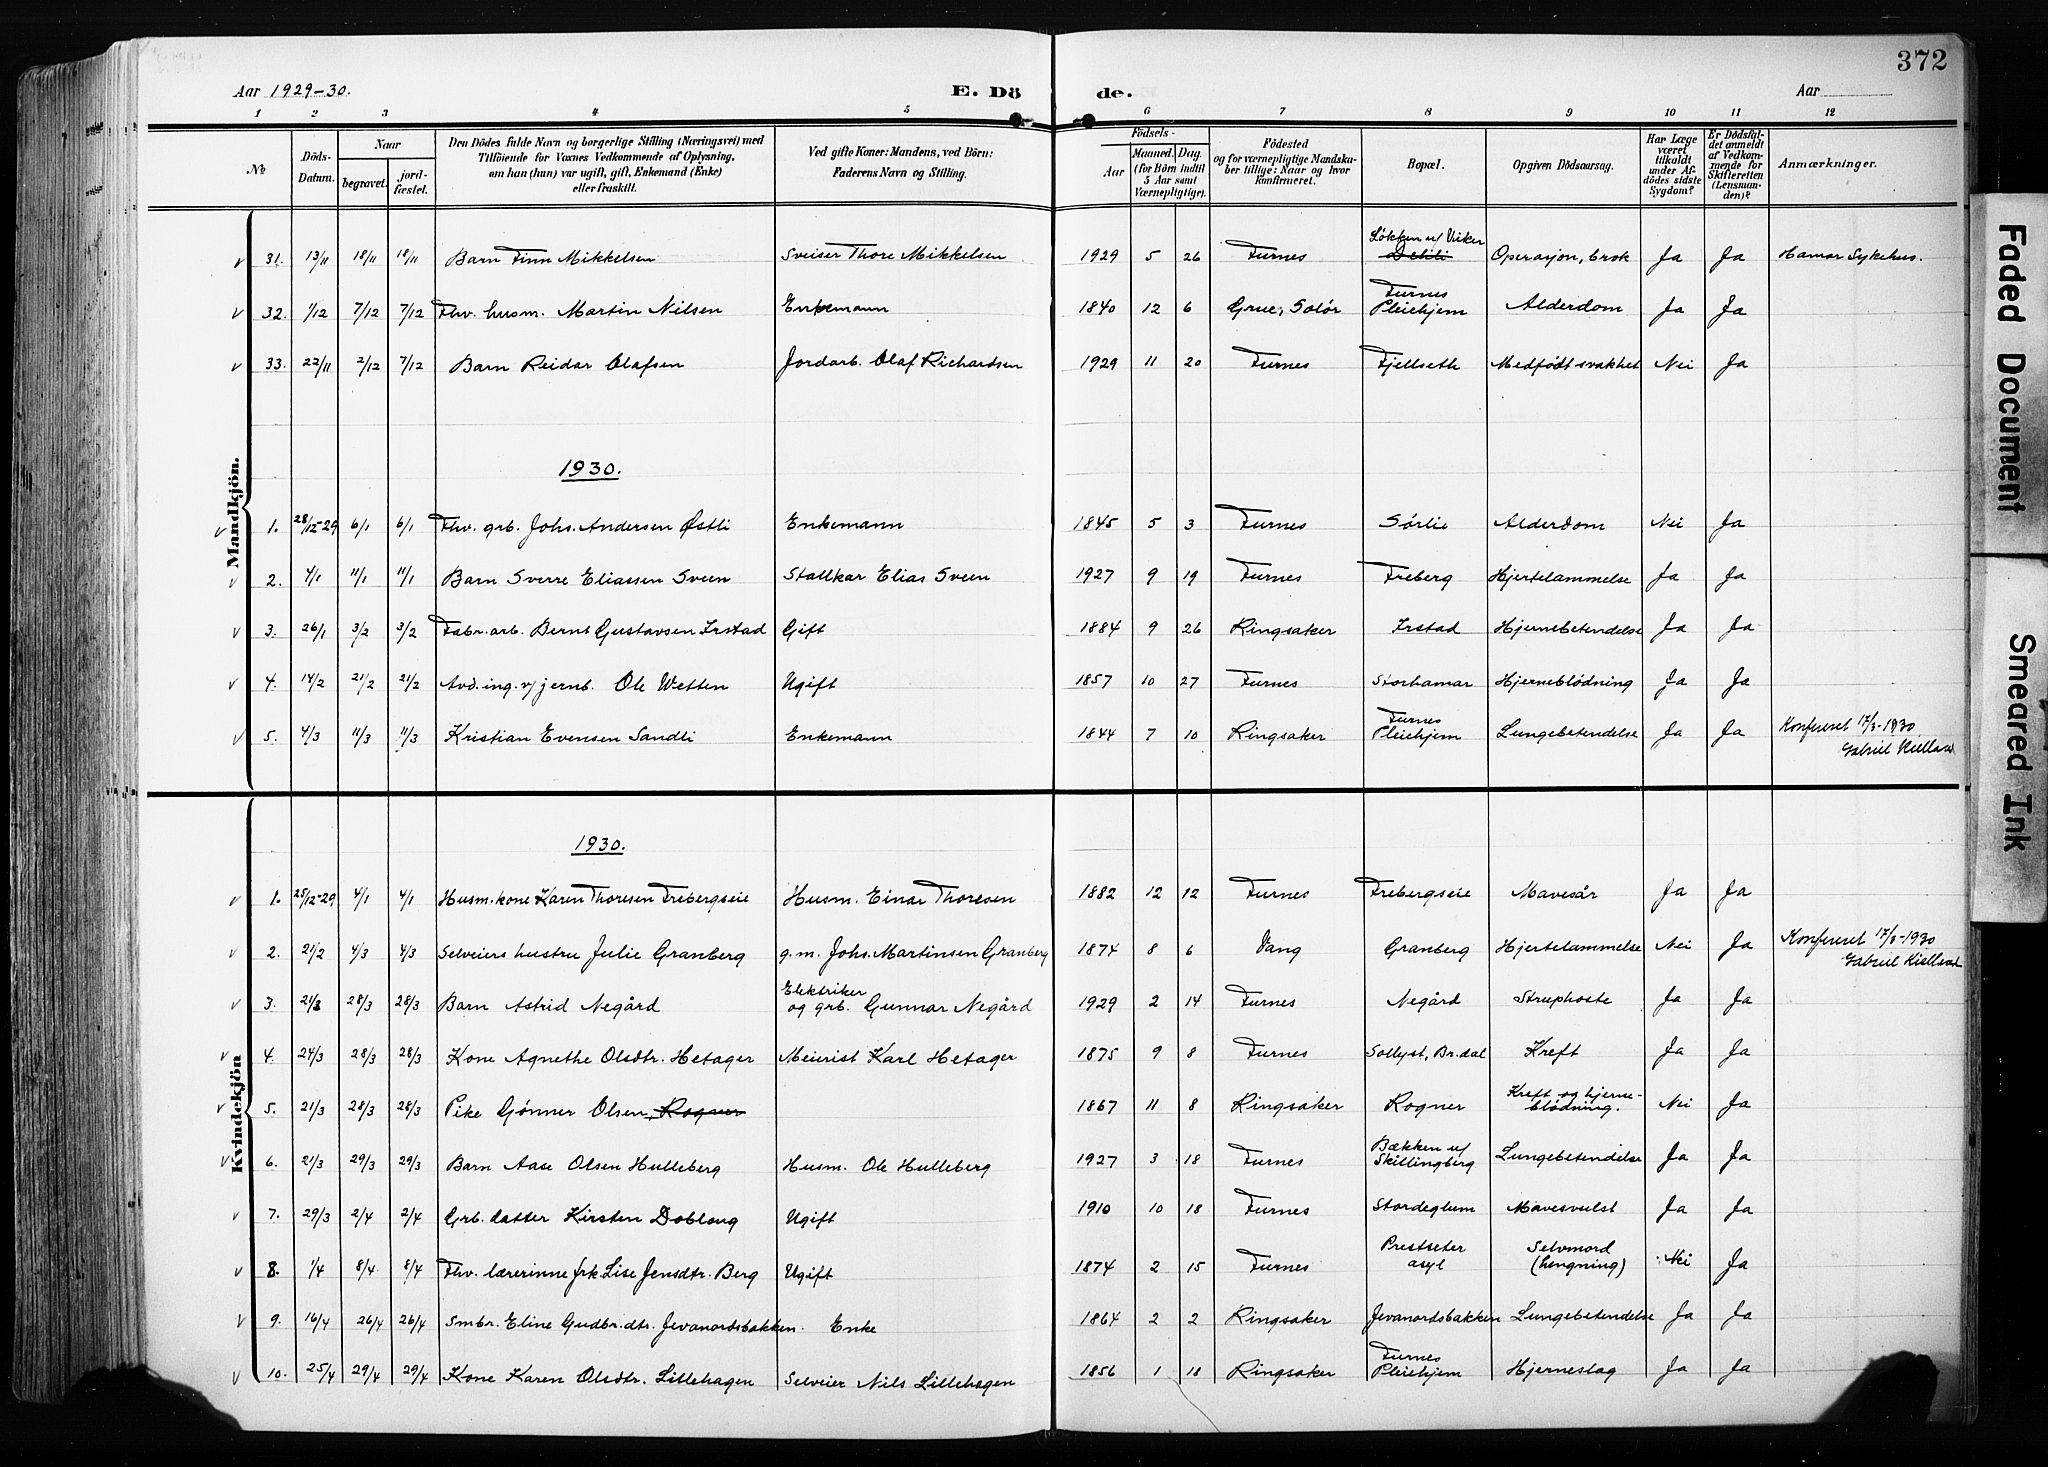 372
Aar 1929-30. E. Dö de. Aar
1 2 3 4 5 6 7 8 9 10 11 12
No
Döds-Datum.
Naar
begravet.
jord-fæstet.
Den Dödes fulde Navn og borgerlige Stilling (Næringsvei) med
Tilföiende for Voxnes Vedkommende af Oplysning,
om han (hun) var ugift, gift, Enkemand (Enke)
eller fraskilt.
Ved gifte Koner: Mandens, ved Börn:
Faderens Navn og Stilling.
Födsels-
Aar
Maaned. Dag.
(for Börn indtil
5 Aar samt
Værnepligtige).
Födested
og for værnepligtige Mandska-
ber tillige: Naar og hvor
konfirmeret.
Bopæl.
Opgiven Dödsaarsag.
Har Læge
været
tilkaldt
under Af-
dödes sidste
Sygdom?
Er Dödsfal-
det anmeldt
af Vedkom-
mende for
Skifteretten
(Lensman-
den)?
Anmærkninger.
Mandkjön.
31. 13/11 18/11 18/11 Barn Finn Mikkelsen Sveiser Thore Mikkelsen 1929 5 26 Furnes Løkken u/ Viker Operasjon, brok Ja Ja Hamar Sykehus.
32. 1/12 7/12 7/12 Fhv. husm. Martin Nilsen Enkemann 1840 12 6 Grue, Solør Furnes Pleiehjem Alderdom Ja Ja
33. 22/11 2/12 7/12 Barn Reidar Olafsen Jordarb. Olaf Richardsen 1929 11 20 Furnes Fjellseth Medfødt svakhet Nei Ja
1930.
1. 28/12-29 6/1 6/1 Fhv. grb. Johs. Andersen Østli Enkemann 1845 5 3 Furnes Sørlie Alderdom Nei Ja
2. 4/1 11/1 11/1 Barn Sverre Eliassen Sveen Stallkar Elias Sveen 1927 9 19 Furnes Freberg Hjertelammelse Ja Ja
3. 26/1 3/2 3/2 Fabr. arb. Bernt Gustavsen Irstad Gift 1884 9 26 Ringsaker Irstad Hjernebetendelse Ja Ja
4. 14/2 21/2 21/2 Avd. ing. v/ jernb. Ole Wetten Ugift 1857 10 27 Furnes Storhamar Hjerneblødning Ja Ja
5. 4/3 11/3 11/3 Kristian Evensen Sandli Enkemann 1844 7 10 Ringsaker Furnes Pleiehjem Lungebetendelse Ja Ja Konferert 17/3-1930
Gabriel Kielland
Kvindekjön
1930.
1. 25/12-29 4/1 4/1 Husm. kone Karen Thoresen Frebergseie Husm. Einar Thoresen 1882 12 12 Furnes Frebergseie Mavesår Ja Ja
2. 21/2 4/3 4/3 Selveiers hustru Julie Granberg g.m. Johs. Martinsen Granberg 1874 8 6 Vang Granberg Hjertelammelse Nei Ja Konferert 17/3-1930
Gabriel Kielland
3. 21/3 28/3 28/3 Barn Astrid Negård Elektriker og grb. Gunnar Negård 1929 2 14 Furnes Negård Struphoste Ja Ja
4. 24/3 28/3 28/3 Kone Agnethe Olsdtr. Hetager Meierist Karl Hetager 1875 9 8 Furnes Sollyst, Br.dal Kreft Ja Ja
5. 21/3 28/3 28/3 Pike Gjønner Olsen, Rogner 1867 11 8 Ringsaker Rogner Kreft og hjerne-blødning. Nei Ja
6. 21/3 29/3 29/3 Barn Aase Olsen Hulleberg Husm. Ole Hulleberg 1927 3 18 Furnes Bækken u/ Skillingberg Lungebetendelse Ja Ja
7. 29/3 2/4 2/4 Grb. datter Kirsten Dobloug Ugift 1910 10 18 Furnes Stordeglum Mavesvulst Ja Ja
8. 1/4 8/4 8/4 Fhv. lærerinne frk Lise Jensdtr. Berg Ugift 1874 2 15 Furnes Prestseter asyl Selvmord (hengning) Nei Ja
9. 16/4 26/4 26/4 Smbr. Eline Gudbr.dtr. Jevanordsbakken. Enke 1864 2 2 Ringsaker Jevanordsbakken Lungebetendelse Ja Ja
10. 25/4 29/4 29/4 Kone Karen Olsdtr. Lillehagen Selveier Nils Lillehagen 1856 1 18 Ringsaker Furnes Pleiehjem Hjerneslag Ja Ja
Faded Document
Smeared Ink